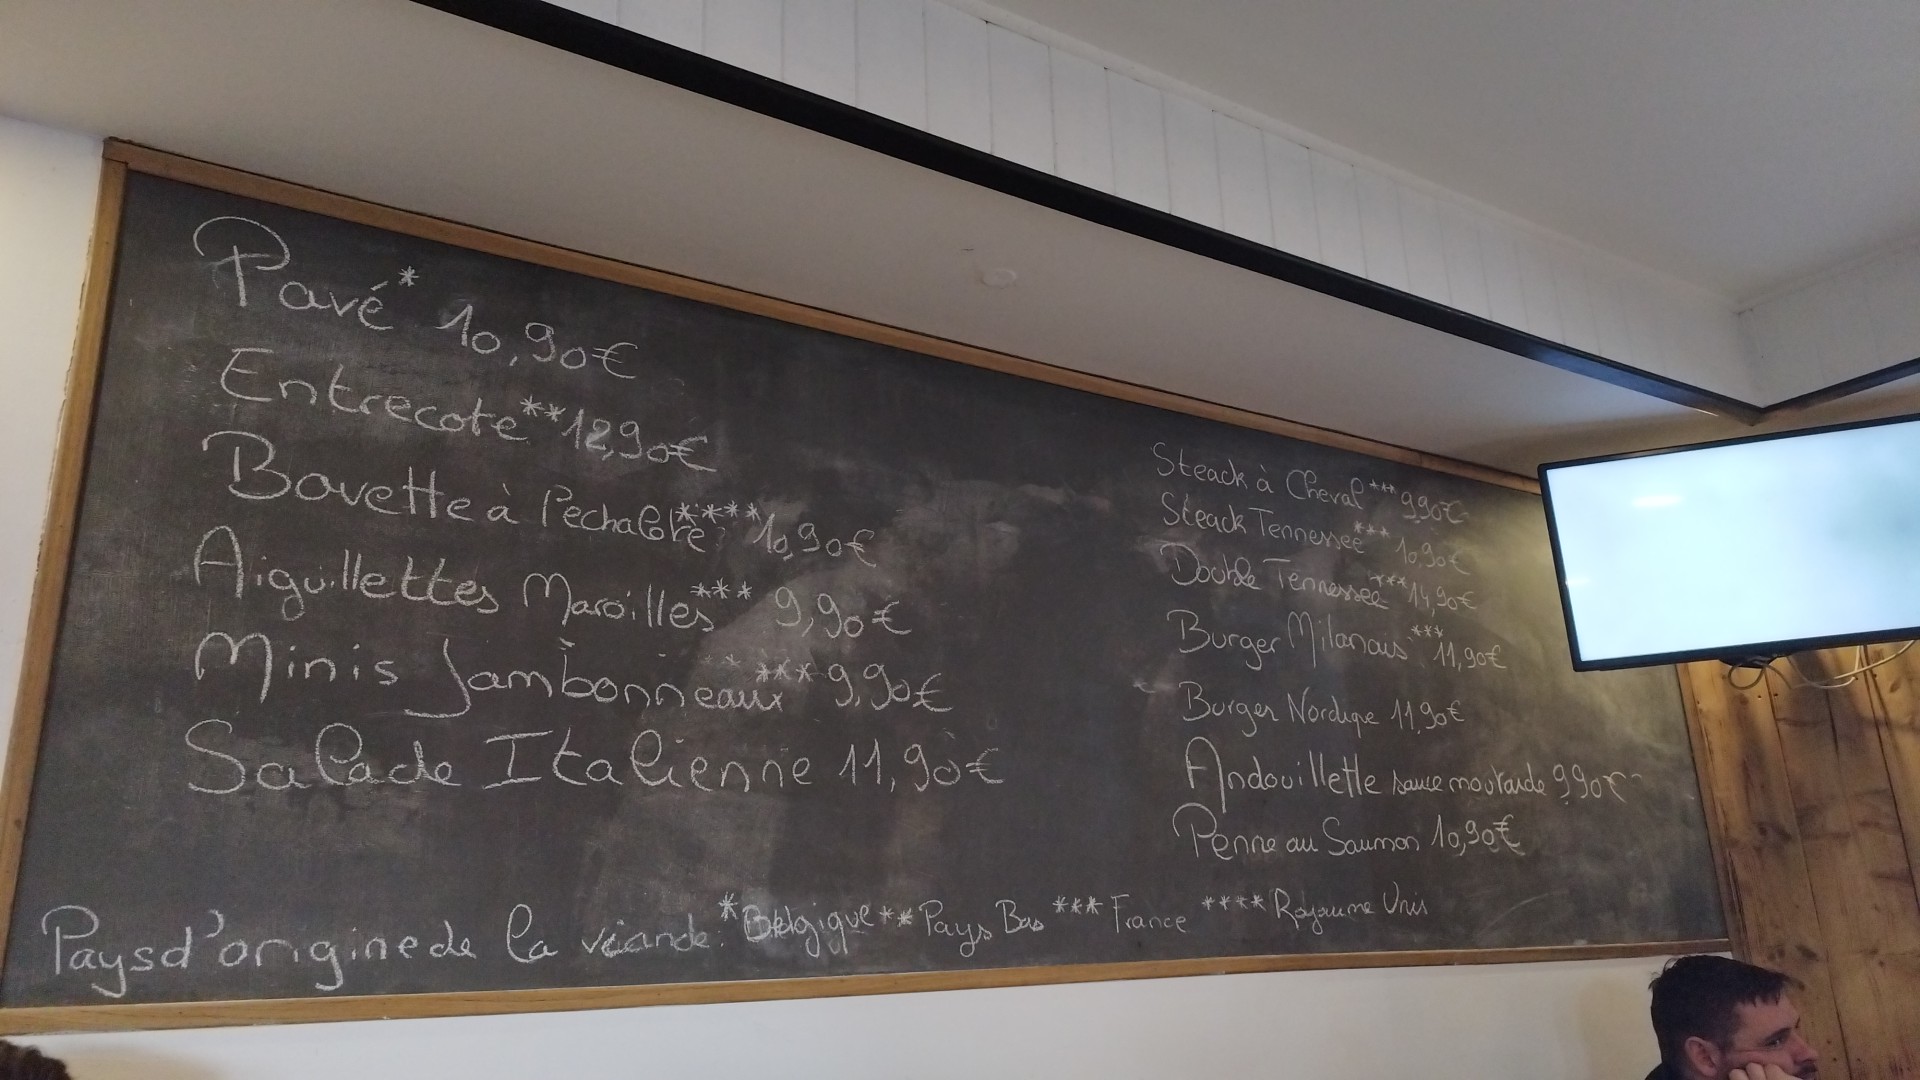 Pavé* 10,90€
Entrecote** 12,90€
Bavette à l'échalote**** 10,90€
Aiguillettes Maroilles*** 9,90€
Minis Jambonneaux *** 9,90€
Salade Italienne 11,90€
Steack à Cheval*** 9,90€
Steack Tennessee*** 10,90€
Double Tennessee*** 14,90€
Burger Milanais*** 11,90€
Burger Nordique 11,90€
Andouillette sauce moutarde 9,90€
Penne au Saumon 10,90€
Pays d'origine de la viande: *Belgique **Pays Bas *** France **** Royaume Unis